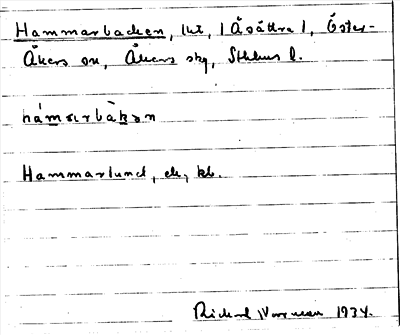 Hammarbacken, lht, i Åsättra 1, Öster-
Åkers sn, Åkers skg, Sthlms l.
hámarbàkən
Hammarlund, ek, kb.
Rickard 1934.